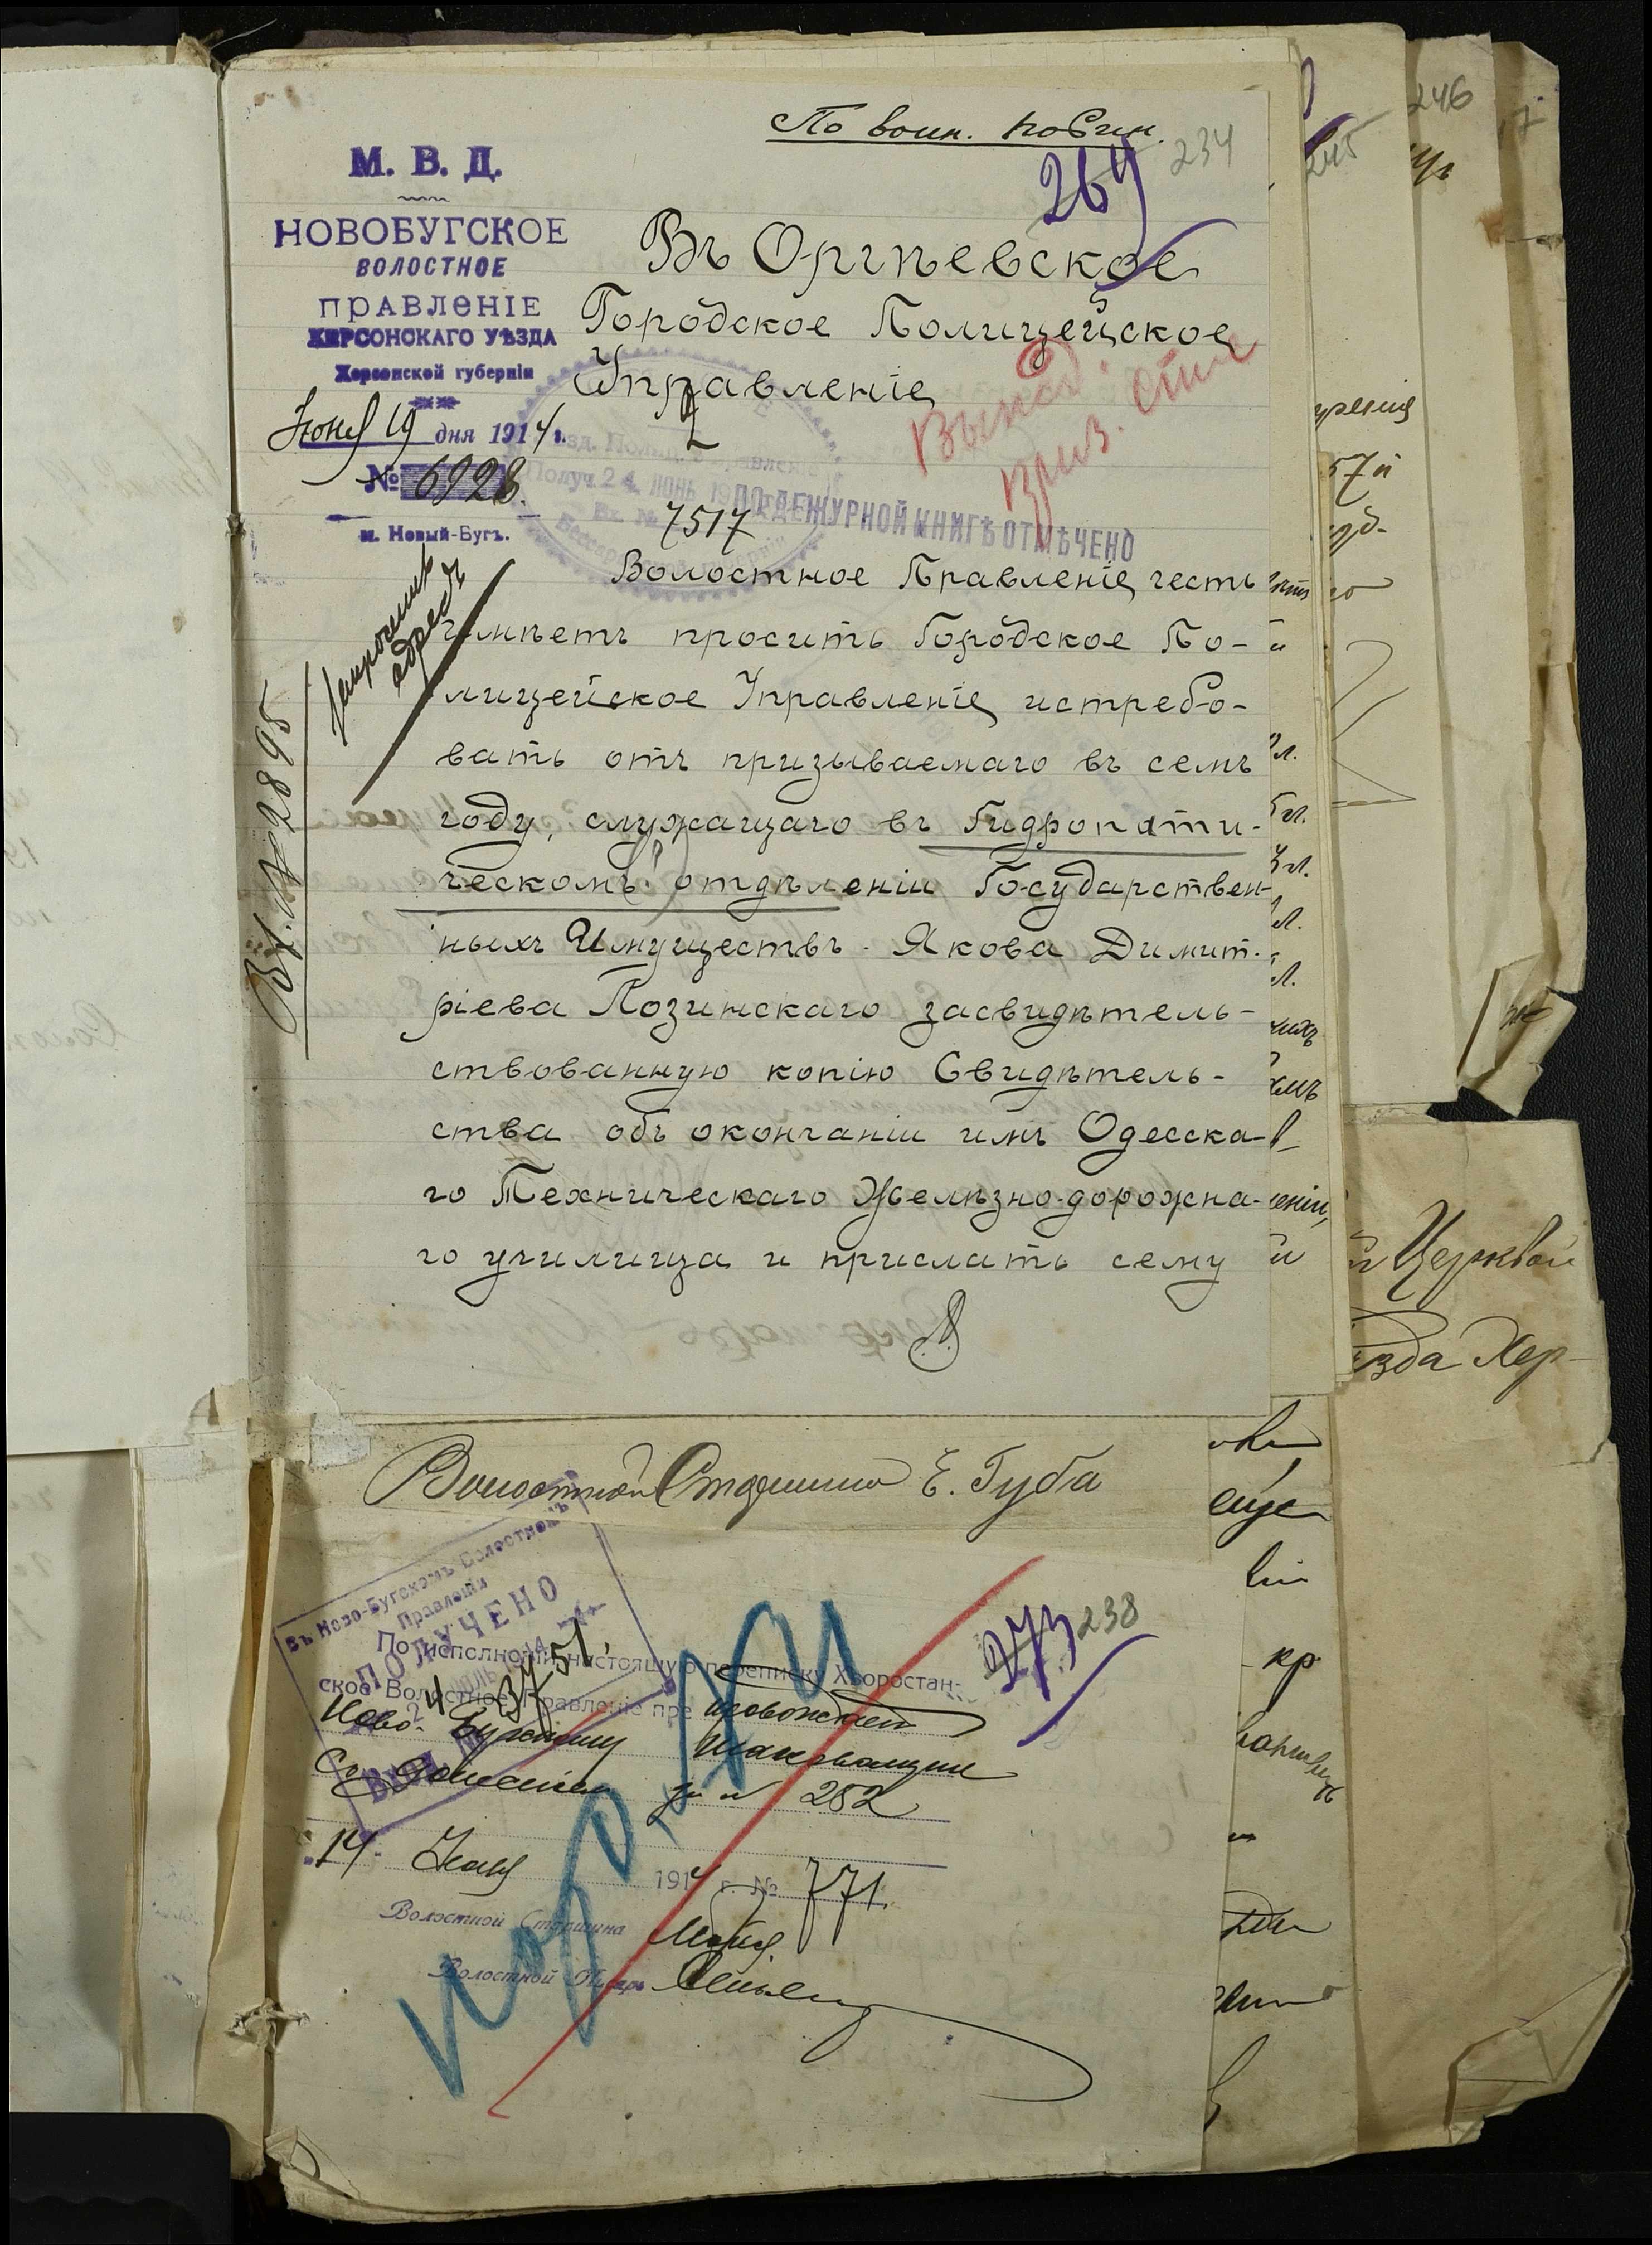 По воин. повин.
269 234
М. В. Д.
НОВОБУГСКОЕ
ВОЛОСТНОЕ
ПРАВЛЕНІЕ
ХЕРСОНСКАГО УѢЗДА
Херсонской губерніи
Іюня 19 дня 1914 г.
№ 6928.
м. Новый-Бугъ.
Въ Оргѣевское
Городское Полицейское
Управленіе
Получ. 24 ИЮНЬ 19
Вх. № 7517
ПО ДЕЖУРНОЙ КНИГѢ ОТМѢЧЕНО
адресъ
Вх. № 2895
Волостное Правленіе честь
имѣетъ просить Городское По-
лицейское Управленіе истребо-
вать отъ призываемаго въ семъ
году, служащаго въ Гидропати-
ческомъ? отдѣленіи Государствен-
ныхъ Имуществъ - Якова Димит-
ріева Позинскаго засвидѣтель-
ствованную копію Свидѣтель-
ства объ окончаніи имъ Одесска-
го Техническаго Желѣзно-дорожна-
го училища и прислать сему
Волостной Старшина Е. Губа
273 238
Въ Ново-Бугскомъ Волостномъ
Правленіи
ПОЛУЧЕНО
3751
По исполненіи настоящую переписку Хворостан-
ское Волостное Правленіе пре провождаетъ
Ново-Бугскому
за № 282
14 Іюня 1914 г. № 771
Волостной Старшина
Волостной Писарь
246
245
57й
й Церквой
ѣзда Хер-
еще
кр